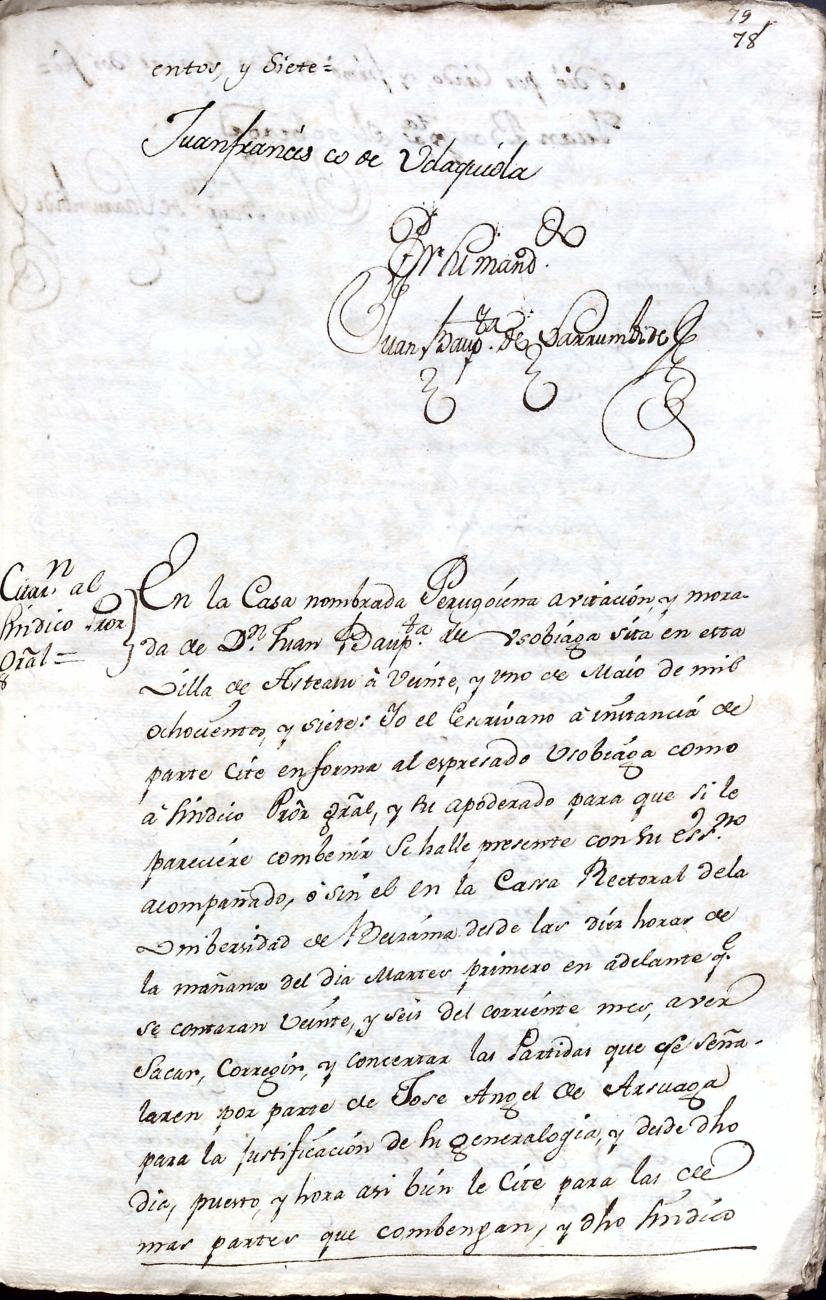 79
78
entos, y Siete=
Juanfrancisco de Vdaquiola
Por su mand.do
Juan Baup.ta de Larrumbide
Citac.n al
Sindico Pror
Gral=
En la Casa nombrada Perugoiena avitación, y mora-
da de D.n Juan Baup.ta de Vsobiaga sita en esta
Villa de Asteasu à Veinte, y uno de Maio de mil
ochocientos, y siete: Yo el Escrivano à instancia de
parte Cité en forma al espresado Vsobiaga como
à Sindico Pror gral, y su apoderado para que si le
pareciere combenir se halle presente con su ess.no
acompañado, ò sin el en la Cassa Rectoral dela
Vnibersidad de Beizama desde las diez horas de
la mañana del dia Martes primero en adelante q.e
se contaran Veinte, y seis del corriente mes, a ver
Sacar, Corregir, y Concertar las Partidas que se seña-
laren por parte de Jose Angel de Arsuaga
para la Justificación de su genealogia, y desde dho
dia, puesto, y hora asi bien le Cité para las de
mas partes que combengan, y dho Sindico